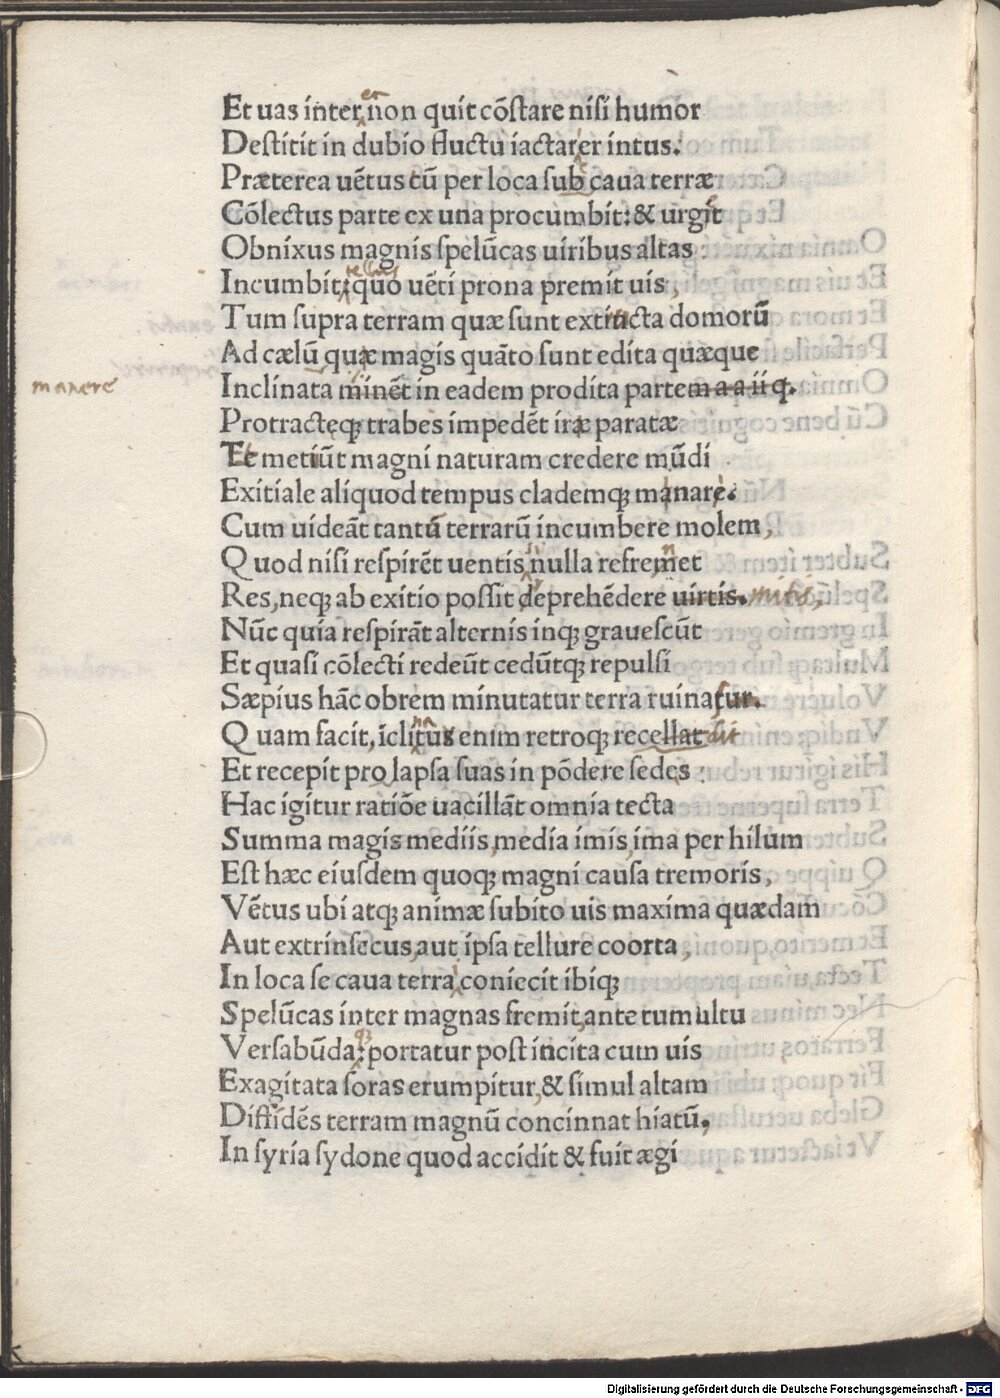 Et uas inter, non quit cõſtare niſi humor
Deſtitit in dubio fluctu iactarer intus.
Præterea uẽtus cũ per loca ſub caua terræ
Cõlectus parte ex una procumbit: & urgit
Obnixus magnis ſpelũcas uiribus altas
Incumbit: quo uẽti prona premit uis,
tellus
Tum ſupra terram quæ ſunt extincta domorũ
Ad cælũ quæ magis quãto ſunt edita quæque
manere
Inclinata minẽt in eadem prodita partem a a ii q.
Protracteqꝫ trabes impedẽt iræ paratæ
Et metiũt magni naturam credere mũdi
Exitiale aliquod tempus clademqꝫ manare.
Cum uideãt tantũ terrarũ incumbere molem,
Quod niſi reſpirẽt uentis nulla refremet
Res, neqꝫ ab exitio poſſit deprehẽdere uirtis.
Nũc quia reſpirãt alternis inqꝫ graueſcũt
Et quaſi cõlecti redeũt cedũtqꝫ repulſi
Sæpius hãc obrem minutatur terra ruinaſur.
Quam facit, ĩclitus enim retroqꝫ recellat
Et recepit pro lapſa ſuas in põdere ſedes:
Hac igitur ratiõe uacillãt omnia tecta
Summa magis mediis, media imis, ima per hilum
Eſt hæc eiuſdem quoqꝫ magni cauſa tremoris,
Vẽtus ubi atqꝫ animæ ſubito uis maxima quædam
Aut extrinſecus, aut ipſa tellure coorta,
In loca ſe caua terra coniecit ibiqꝫ
Spelũcas inter magnas fremit, ante tumultu
Verſabũda: portatur poſt incita cum uis
Exagitata foras erumpitur, & ſimul altam
Diffidẽs terram magnũ concinnat hiatũ,
In ſyria ſydone quod accidit & fuit ægi
Digitalisierung gefördert durch die Deutsche Forschungsgemeinschaft - DFG